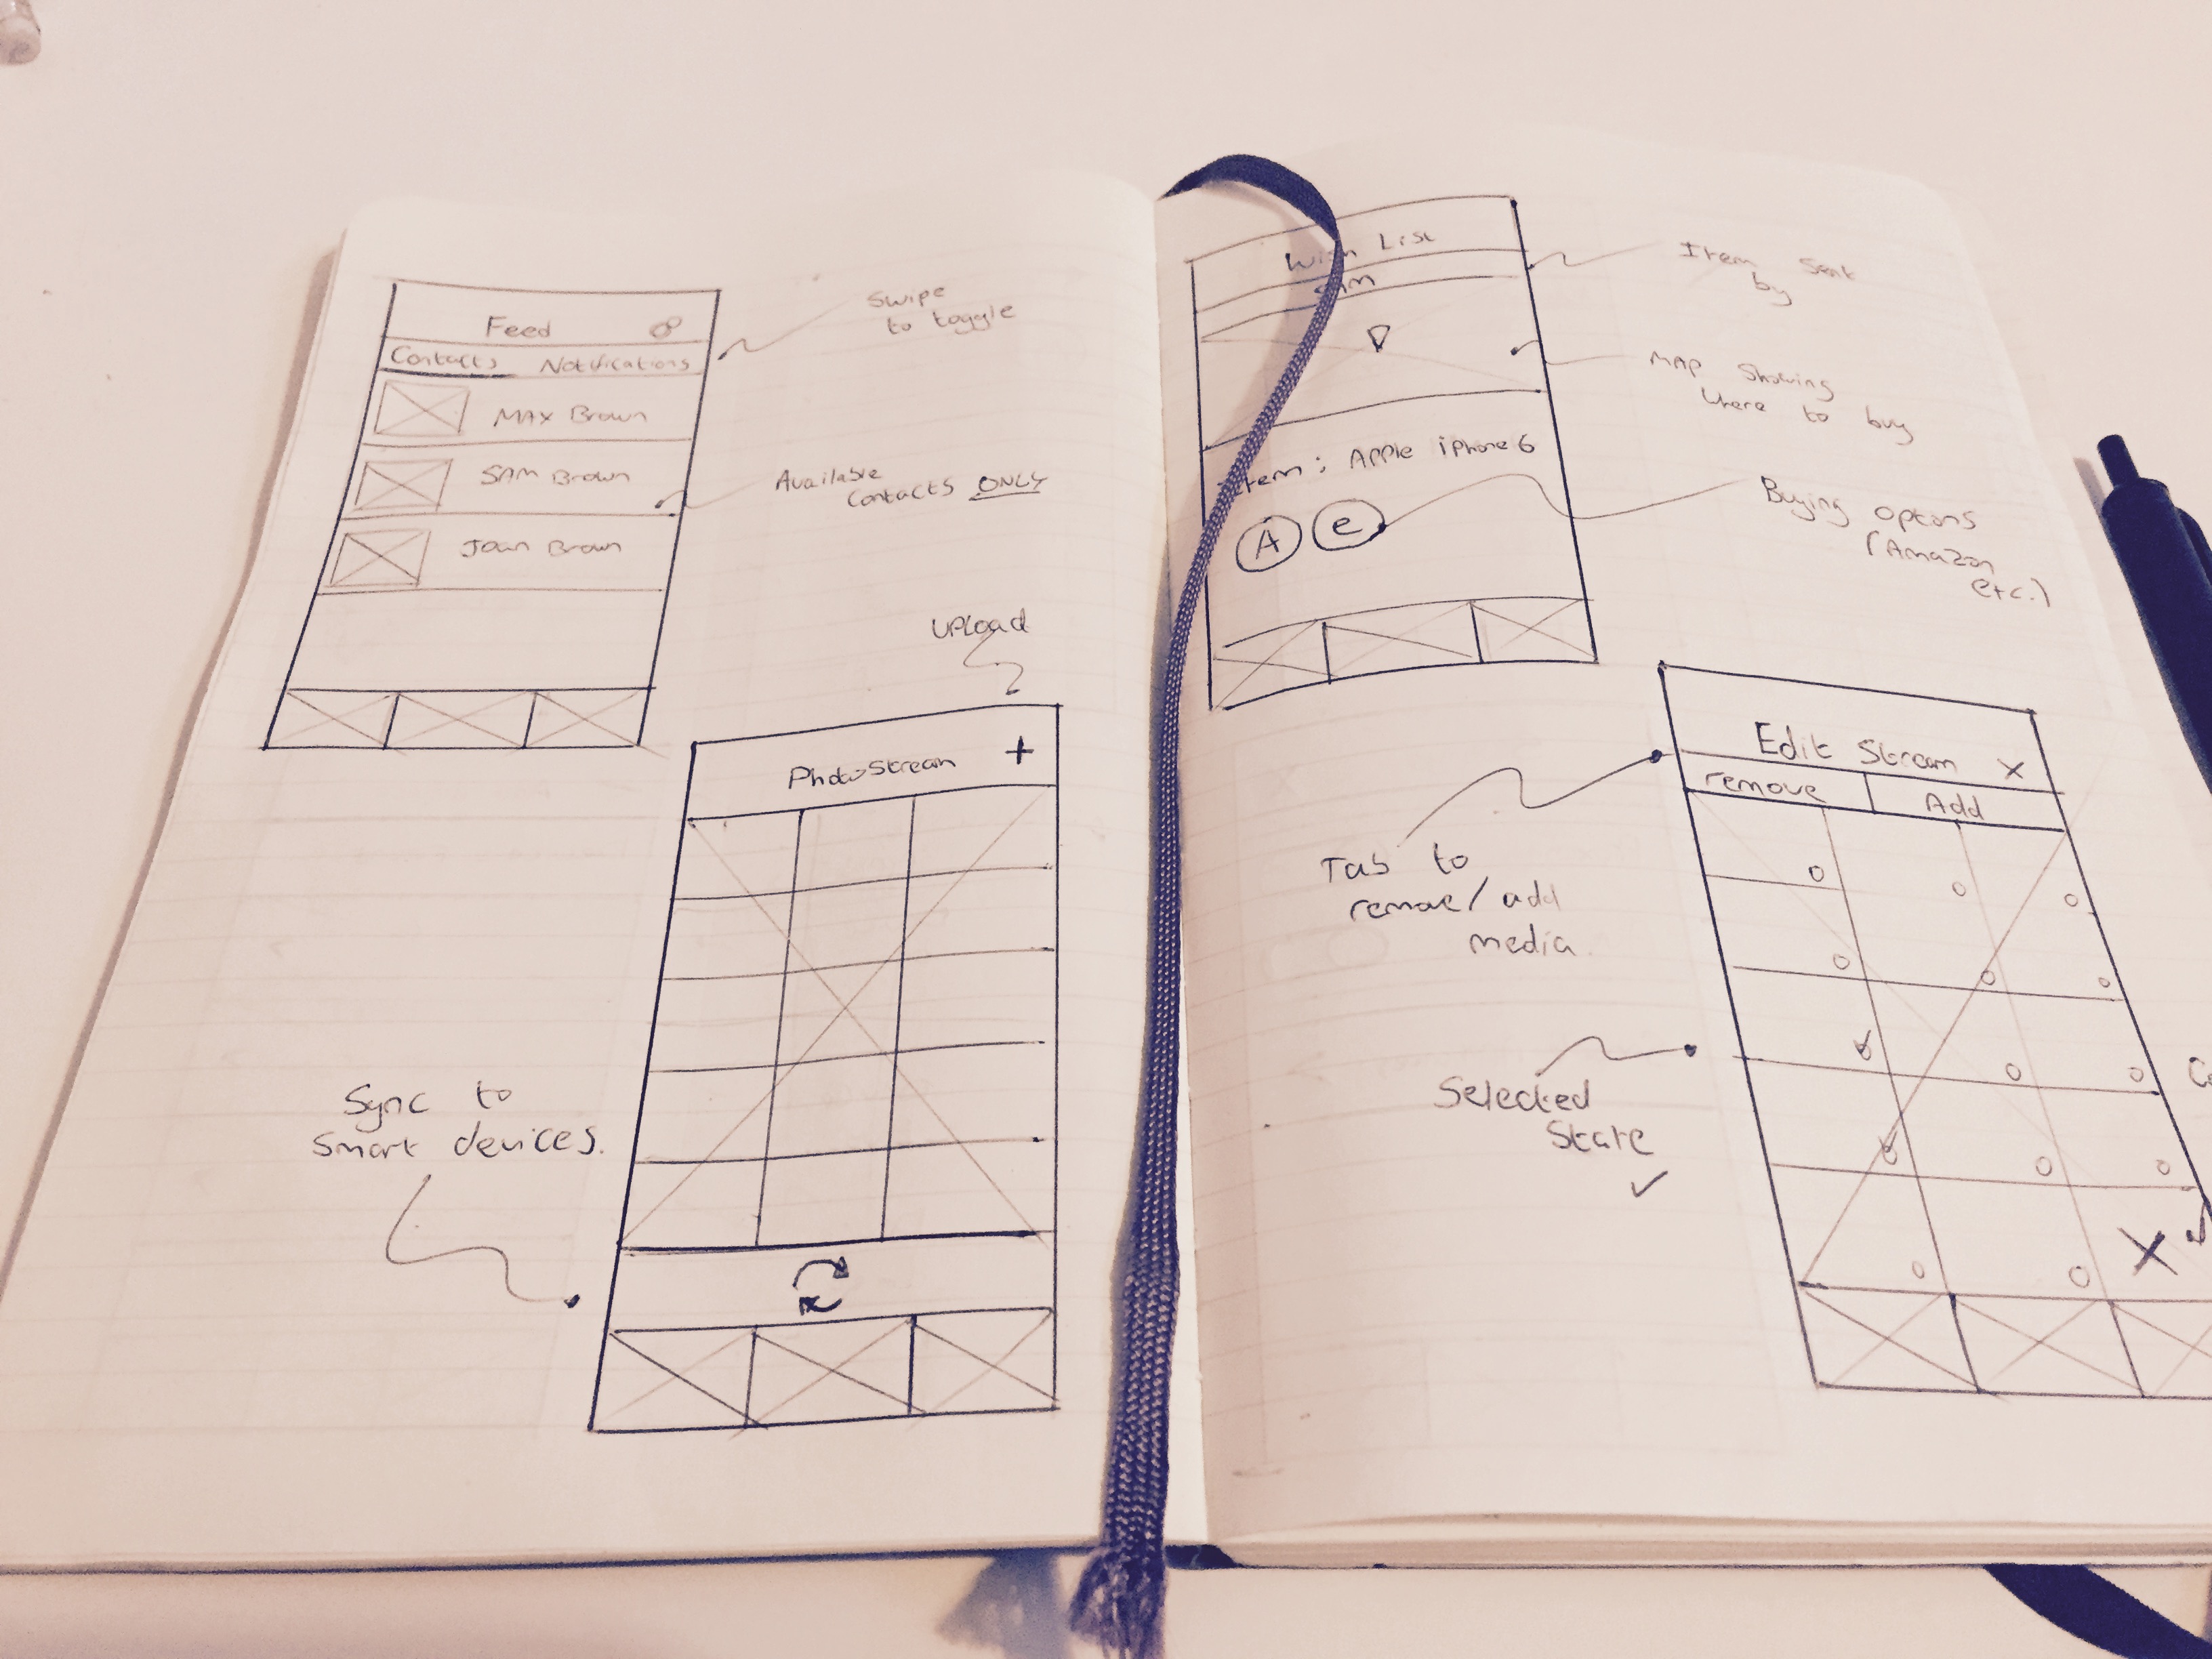 Feed
Contacts Notifications
MAX Brown
SAM Brown
Joan Brown
Swipe
to toggle
Available
Contacts ONLY
UPLoad
PhotoStream +
Sync to
Smart devices.
List
Item Sent
by
MAP Showing
where to buy
Item: Apple iPhone 6
A e
Buying options
(Amazon
etc.)
Edit Stream X
remove Add
Tab to
remove/add
media.
Selected
State
✓
X